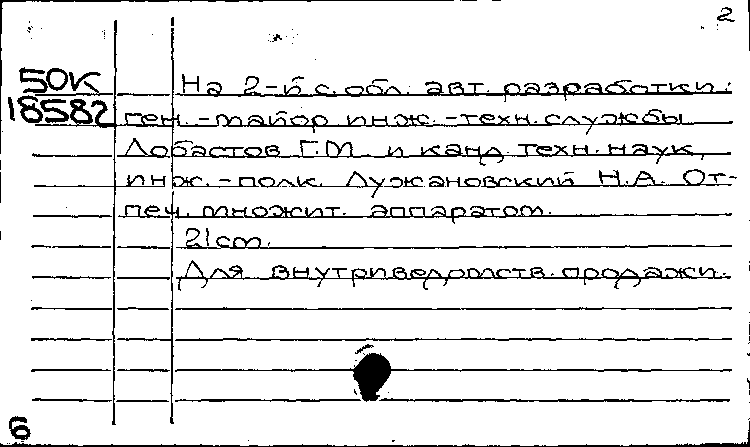 2
50К
18582
На 2-й с. обл. авт. разработки:
ген.-майор инж.-техн. службы
Лобастов Г.М. и канд. техн. наук,
инж.-полк. Лужановский Н.А. От-
печ. множит. аппаратом.
21 cm.
Для внутриведомств. продажи.
6